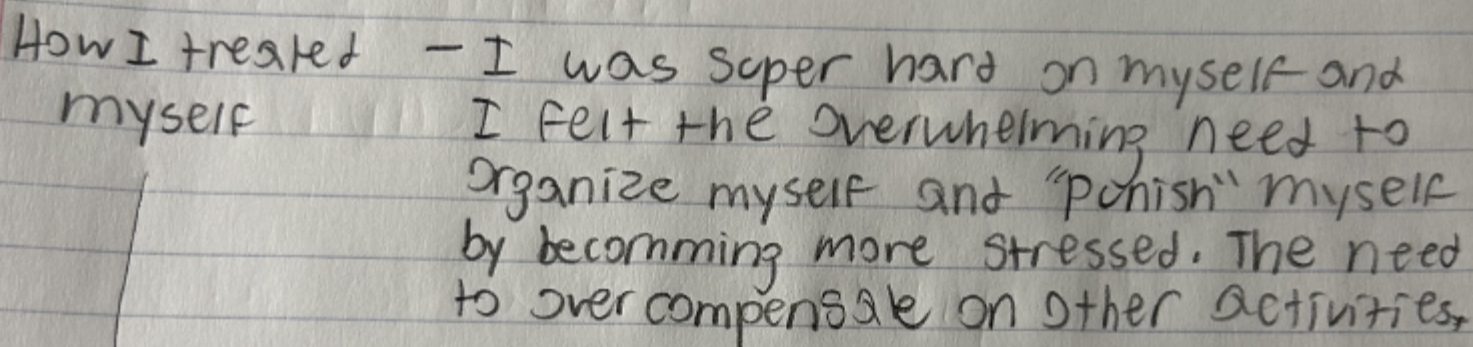 How I treated - I was super hard on myself and
myself I felt the overwhelming need to
organize myself and "punish" myself
by becomming more stressed. The need
to over compensate on other activities,